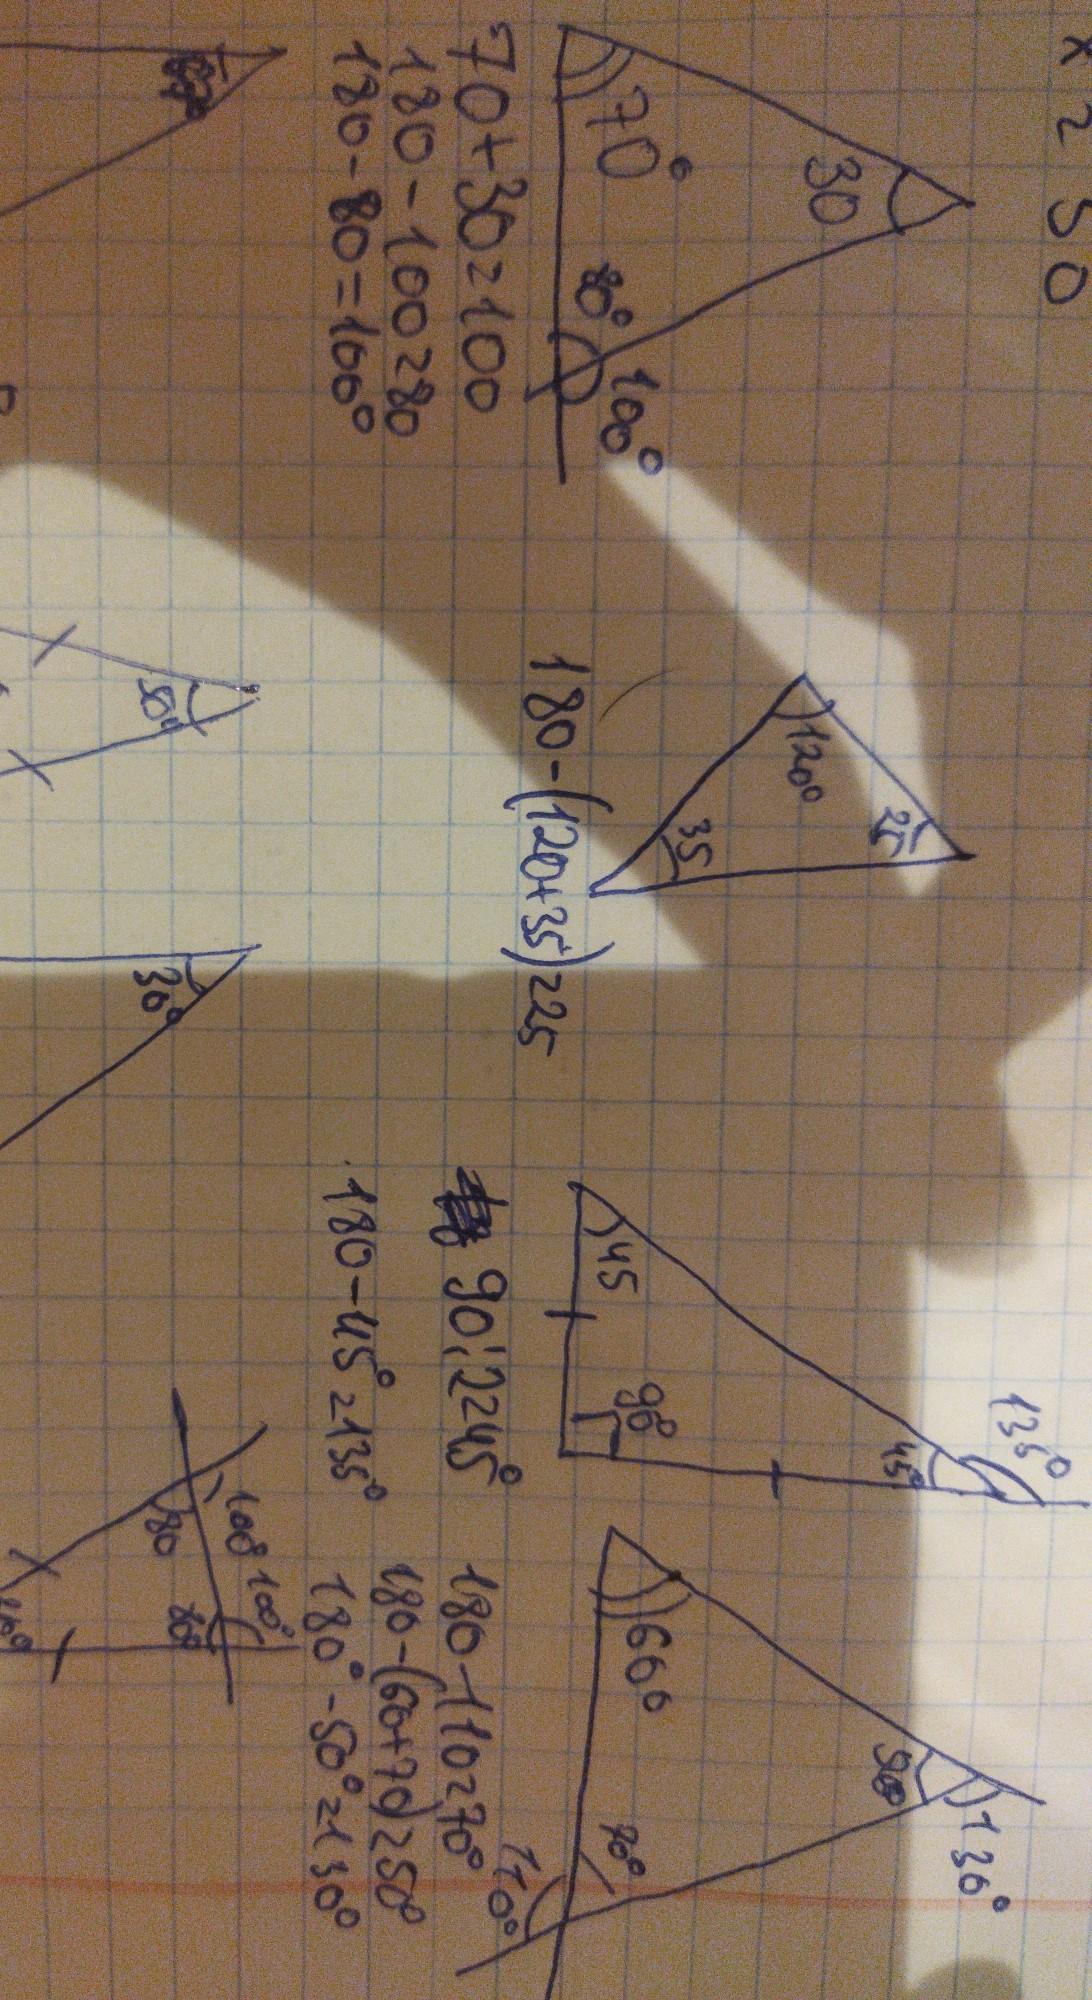 x = 50
30
70°
80°
100°
70+30=100
180-100=80
180-80=100°
120°
25
35
180-(120+35)=25
135°
45°
45
90°
90:2=45°
180-45°=135°
130°
50°
60°
70°
110°
180-110=70°
180-(60+70)=50°
180°-50°=130°
50°
30°
100°
100°
80
80°